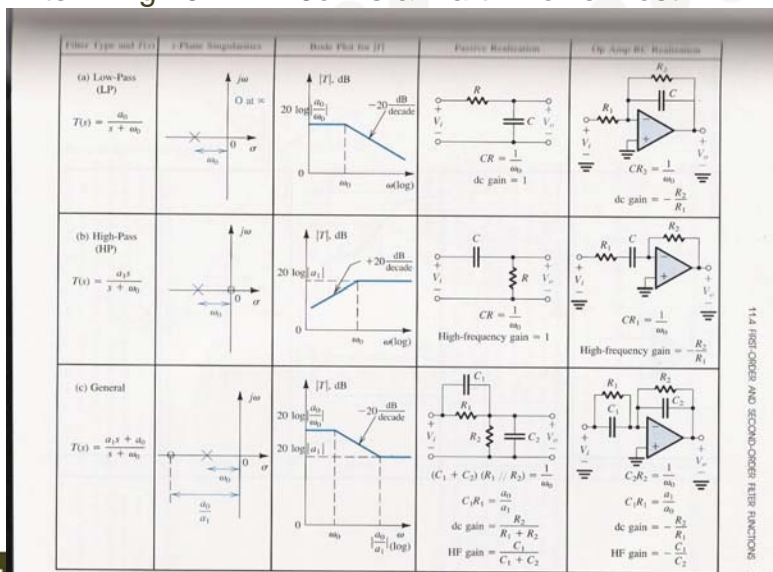 Filter Type and T(s) s-Plane Singularities Bode Plot for |T| Passive Realization Op Amp-RC Realization
(a) Low-Pass
(LP)
T(s) = a₀ / (s + ω₀)
jω
O at ∞
0
σ
ω₀
|T|, dB
20 log |a₀/ω₀|
−20 dB/decade
0
ω₀
ω(log)
R
+
Vi
−
C
+
Vo
−
CR = 1/ω₀
dc gain = 1
R₂
C
R₁
+
Vi
−
−
+
+
Vo
−
CR₂ = 1/ω₀
dc gain = − R₂/R₁
(b) High-Pass
(HP)
T(s) = a₁s / (s + ω₀)
jω
0
σ
ω₀
|T|, dB
20 log |a₁|
+20 dB/decade
0
ω₀
ω(log)
C
+
Vi
−
R
+
Vo
−
CR = 1/ω₀
High-frequency gain = 1
R₂
R₁
C
+
Vi
−
−
+
+
Vo
−
CR₁ = 1/ω₀
High-frequency gain = − R₂/R₁
(c) General
T(s) = (a₁s + a₀) / (s + ω₀)
jω
0
σ
ω₀
a₀/a₁
|T|, dB
20 log |a₀/ω₀|
20 log |a₁|
−20 dB/decade
0
ω₀
|a₀/a₁|
ω
(log)
C₁
R₁
+
Vi
−
R₂
C₂
+
Vo
−
(C₁ + C₂) (R₁ // R₂) = 1/ω₀
C₁R₁ = a₀/a₁
dc gain = R₂ / (R₁ + R₂)
HF gain = C₁ / (C₁ + C₂)
R₁
C₁
R₂
C₂
+
Vi
−
−
+
+
Vo
−
C₂R₂ = 1/ω₀
C₁R₁ = a₁/a₀
dc gain = − R₂/R₁
HF gain = − C₁/C₂
11.4 FIRST-ORDER AND SECOND-ORDER FILTER FUNCTIONS